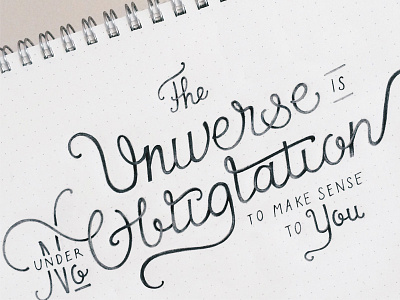 The
Universe IS
UNDER
No
Obligation
TO MAKE SENSE
TO You